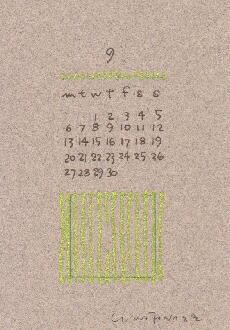 9
m t w t f s s
1 2 3 4 5
6 7 8 9 10 11 12
13 14 15 16 17 18 19
20 21 22 23 24 25 26
27 28 29 30